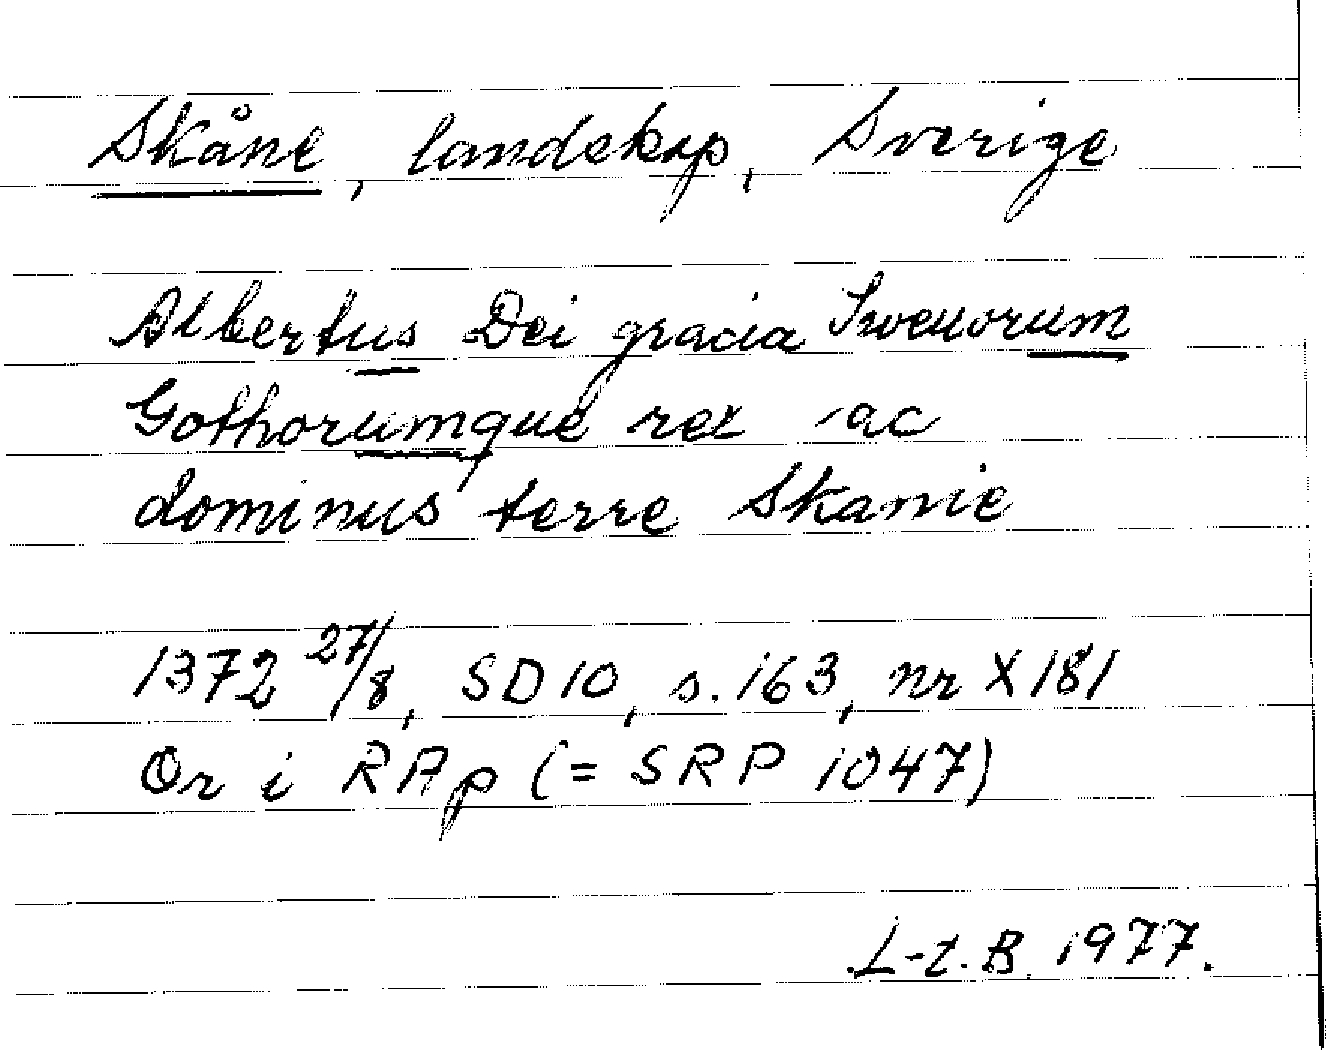 Skåne, landskap, Sverige
Albertus Dei gracia Sweuorum
Gothorumque rex ac
dominus terre Skanie
1372 27/8, SD 10, s. 163, nr X 181
Or i RAp (= SRP 1047)
L-t. B. 1977.